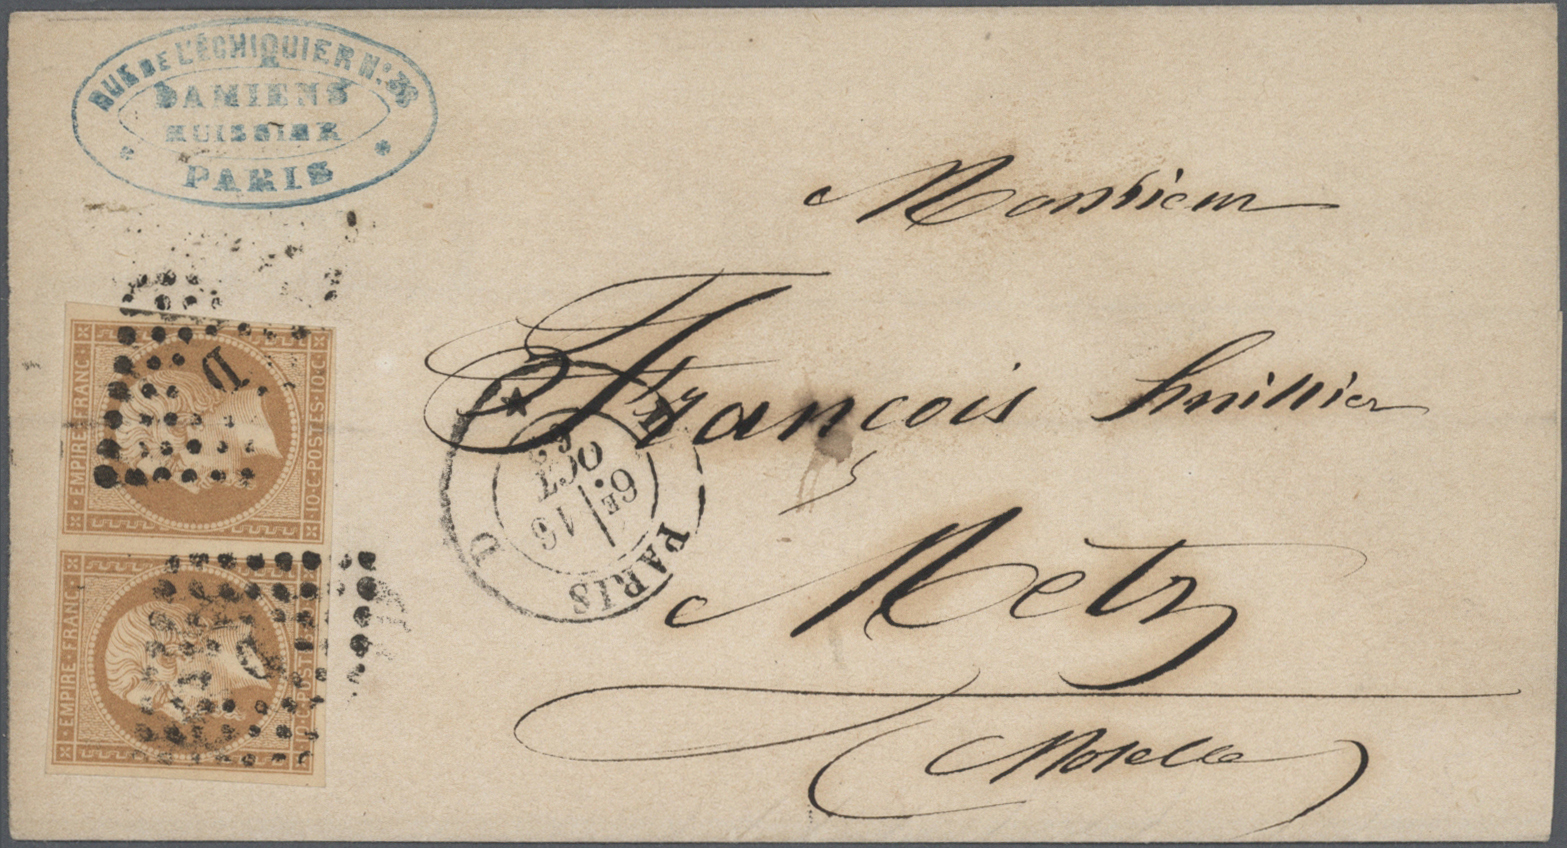 RUE DE L'ÉCHIQUIER N: 36
DAMIENS
HUISSIER
PARIS
Monsieur
François
Metz
(Moselle)
EMPIRE·FRANC·
10·C·POSTES·10·C·
D
EMPIRE·FRANC·
10·C·POST
D
PARIS
D
6E
16
OCT